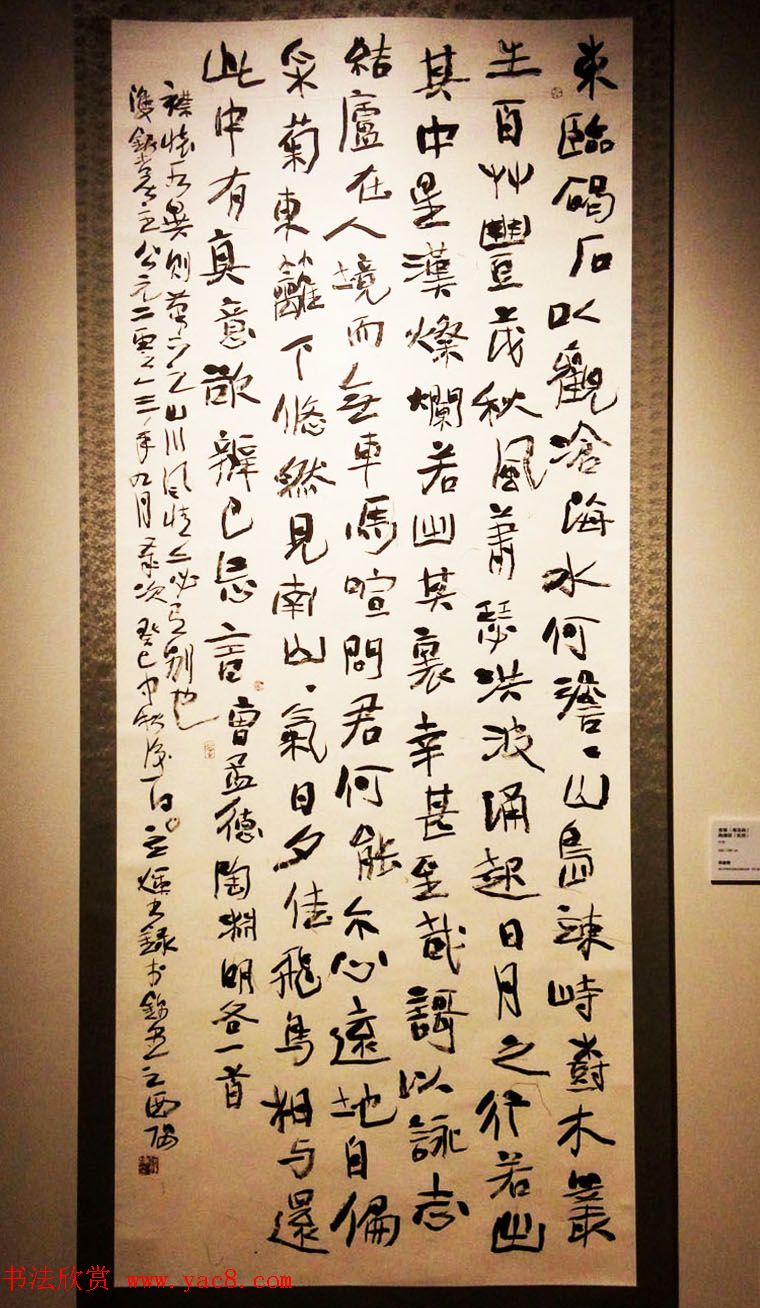 東臨碣石以觀滄海水何澹、山島竦峙樹木叢
生百艸豐茂秋風蕭瑟洪波涌起日月之行若出
其中星漢燦爛若出其裏幸甚至哉謌以詠志
結廬在人境而無車馬喧問君何能尒心遠地自偏
采菊東籬下悠然見南山、氣日夕佳飛鳥相与還
此中有真意欲辨已忘言 曹孟德陶淵明各一首
襟懷有異則山川風情亦必有別也
公元二零一三年九月歲次癸巳中秋後一日
书法欣赏 www.yac8.com